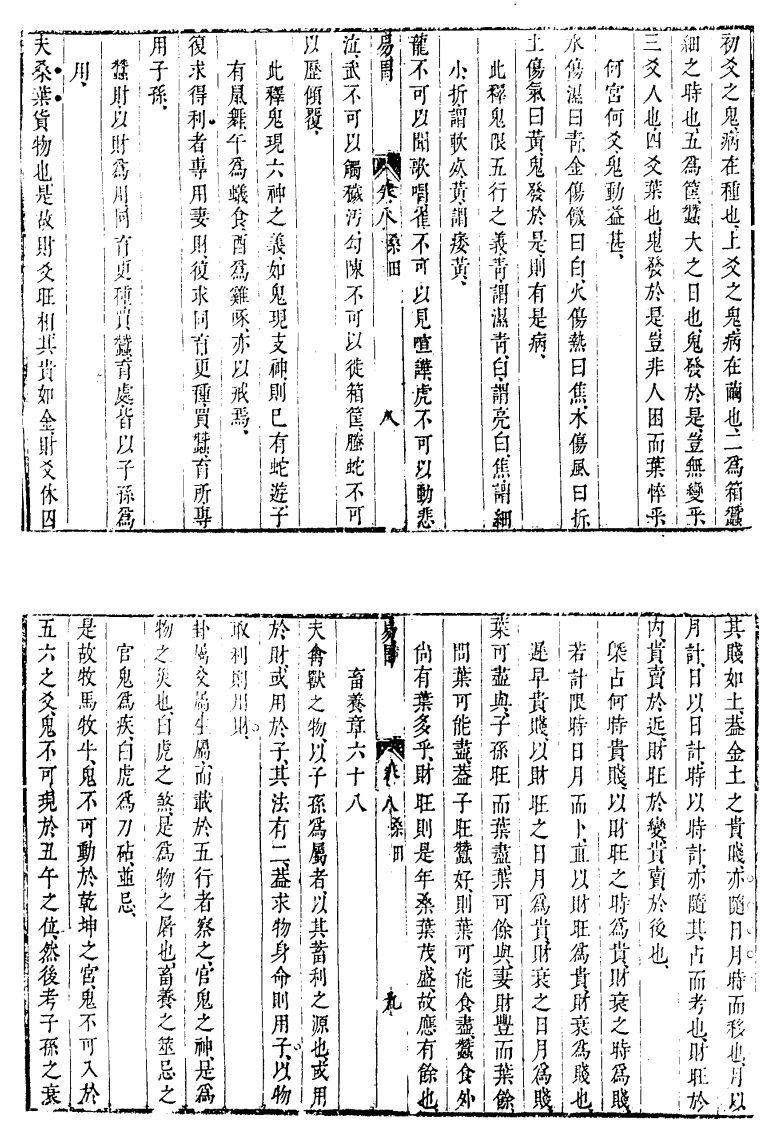 初爻之鬼病在種也上爻之鬼病在繭也二爲箱蠶
細之時也五爲筐蠶大之日也鬼發於是豈無變乎
三爻人也四爻葉也鬼發於是豈非人困而葉悴乎
何宮何爻鬼動益甚
水傷濕曰青金傷饑曰白火傷熱曰焦木傷風曰折
土傷氣曰黃鬼發於是則有是病
此釋鬼限五行之義青謂濕青白謂亮白焦謂細
小折謂歌黃謂痿黃
龍不可以聞歌唱雀不可以見喧譁虎不可以動悲
易冐 卷八 桑田 八
泣武不可以觸穢汚勾陳不可以徙箱筐螣蛇不可
以歴傾覆
此釋鬼現六神之義如鬼現支神則巳有蛇遊子
有鼠舞午爲蟻食酉爲雞啄亦以戒焉
復求得利者專用妻財復求同育更種買蠶育所專
用子孫
蠶財以財爲用同育更種買蠶育處皆以子孫爲
用
夫桑葉貨物也是故財爻旺相其貴如金財爻休囚
其賤如土葢金土之貴賤亦隨日月時而移也月以
月計日以日計時以時計亦隨其占而考也財旺於
内貴賣於近財旺於變貴賣於後也
槩占何時貴賤以財旺之時爲貴財衰之時爲賤
若計限時日月而卜直以財旺爲貴財衰爲賤也
遲早貴賤以財旺之日月爲貴財衰之日月爲賤
葉可盡與子孫旺而葉盡葉可餘與妻財豐而葉餘
問葉可能盡葢子旺蠶好則葉可能食盡蠶食外
尙有葉多乎財旺則是年桑葉茂盛故應有餘也
易冐 卷八 桑田 九
畜養章六十八
夫禽獸之物以子孫爲屬者以其蓄利之源也或用
於財或用於子其法有二葢求物身命則用子以物
取利則用財
卦屬爻屬生屬而載於五行者察之官鬼之神是爲
物之災也白虎之煞是爲物之屠也畜養之筮忌之
官鬼爲疾白虎爲刀砧並忌
是故牧馬牧牛鬼不可動於乾坤之宮鬼不可入於
五六之爻鬼不可現於丑午之位然後考子孫之衰